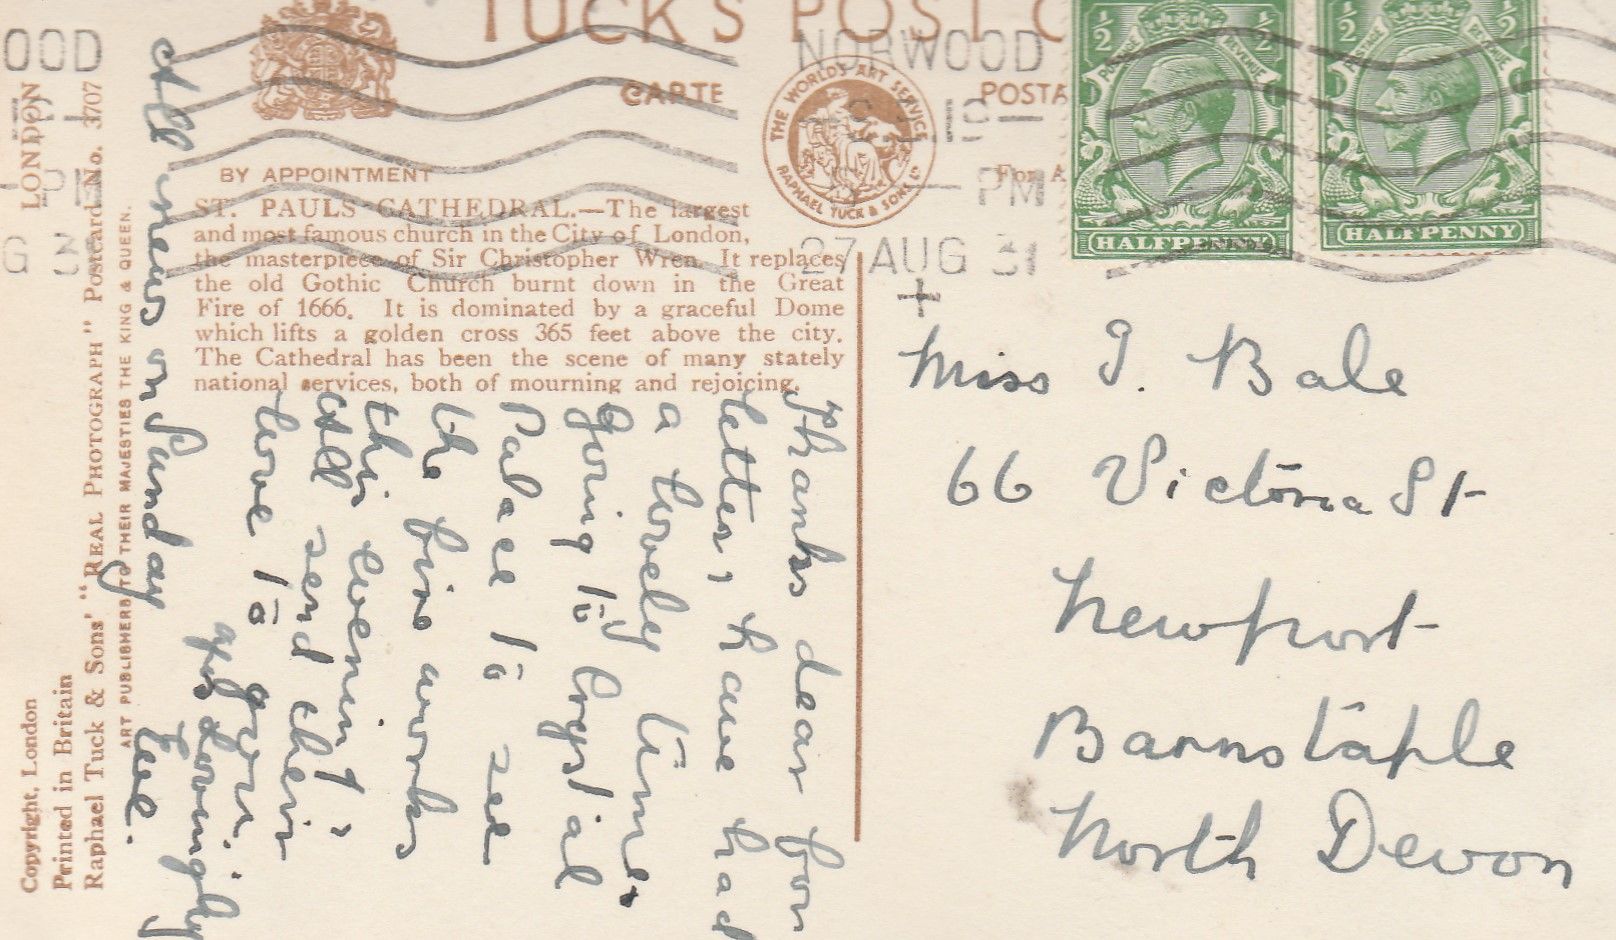 TUCK'S POST C
CARTE POSTA
For A
BY APPOINTMENT
THE WORLD'S ART SERVICE
RAPHAEL TUCK & SONS Ld
ST. PAULS CATHEDRAL.—The largest
and most famous church in the City of London,
the masterpiece of Sir Christopher Wren. It replaces
the old Gothic Church burnt down in the Great
Fire of 1666. It is dominated by a graceful Dome
which lifts a golden cross 365 feet above the city.
The Cathedral has been the scene of many stately
national services, both of mourning and rejoicing.
LONDON
Raphael Tuck & Sons' "REAL PHOTOGRAPH" Postcard No. 3707
ART PUBLISHERS TO THEIR MAJESTIES THE KING & QUEEN.
Copyright, London
Printed in Britain
OOD
PM
G 3
NORWOOD
S.E.19
PM
27 AUG 31
½ ½
POSTAGE REVENUE
HALFPENNY
½ ½
POSTAGE REVENUE
HALFPENNY
Miss J. Bale
66 Victoria St
Newport
Barnstaple
North Devon
Thanks dear for
letter, have had
a lovely time.
Going to Crystal
Palace to see
the fire works
this evening,
All send their
love to you.
Yrs Lovingly
Eve.
All news on Sunday